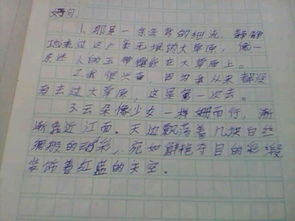 好句:
1.那是一条安静的河流,静静
地流过这片广袤无垠的大草原,像一
条迷人的玉带镶嵌在大草原上。
2.我很兴奋,因为我从来都没
有去过大草原,这是第一次去。
3.云朵像少女一样姗姗而行,渐
渐靠近江面。天边飘荡着几块白
的动彩,宛如鲜艳夺目的彩缎
装饰着红蓝的天空。